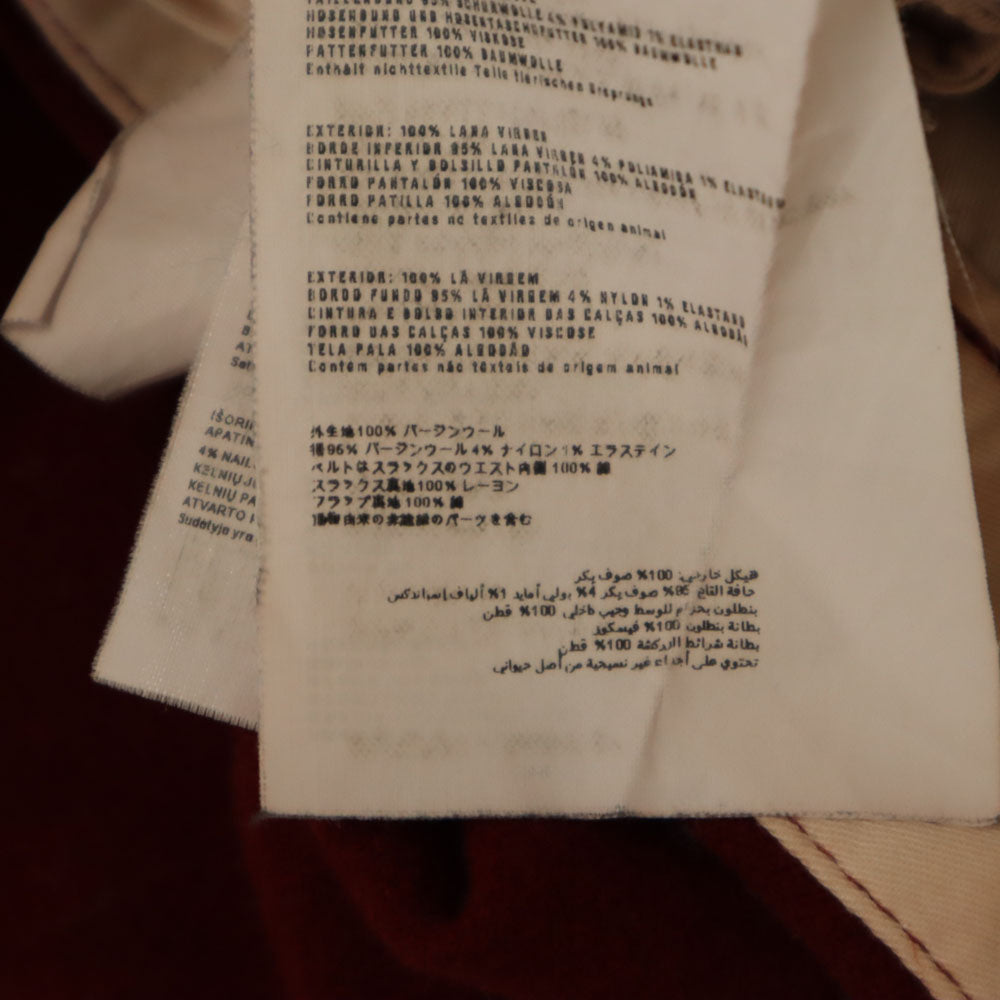 95% SCHURWOLLE 4% POLYAMID 1% ELASTHAN
HOSENBUND UND HOSENTASCHENFUTTER 100% BAUMWOLLE
HOSENFUTTER 100% VISKOSE
PATTENFUTTER 100% BAUMWOLLE
Enthält nichttextile Teile tierischen Ursprungs
EXTERIOR: 100% LANA VIRGEN
BORDE INFERIOR 95% LANA VIRGEN 4% POLIAMIDA 1% ELASTANO
CINTURILLA Y BOLSILLO PANTALÓN 100% ALGODÓN
FORRO PANTALÓN 100% VISCOSA
FORRO PATILLA 100% ALGODÓN
Contiene partes no textiles de origen animal
EXTERIOR: 100% LÃ VIRGEM
BORDO FUNDO 95% LÃ VIRGEM 4% NYLON 1% ELASTANO
CINTURA E BOLSO INTERIOR DAS CALÇAS 100% ALGODÃO
FORRO DAS CALÇAS 100% VISCOSE
TELA PALA 100% ALGODÃO
Contém partes não têxteis de origem animal
外生地100% バージンウール
裾95% バージンウール 4% ナイロン 1% エラステイン
ベルトはスラックスのウエスト内側 100% 綿
スラックス裏地100% レーヨン
フラップ裏地 100% 綿
動物由来の非繊維のパーツを含む
هيكل خارجي: 100% صوف بكر
حافة القاع 95% صوف بكر 4% بولي أمايد 1% ألياف إسباندكس
بنطلون بحزام للوسط وجيب داخلي 100% قطن
بطانة بنطلون 100% فيسكوز
بطانة شرائط الزركشة 100% قطن
تحتوي على أجزاء غير نسيجية من أصل حيواني
IŠORI
APATIN
4% NAIL
KELNIŲ J
KELNIŲ PA
ATVARTO P
Sudėtyje yra